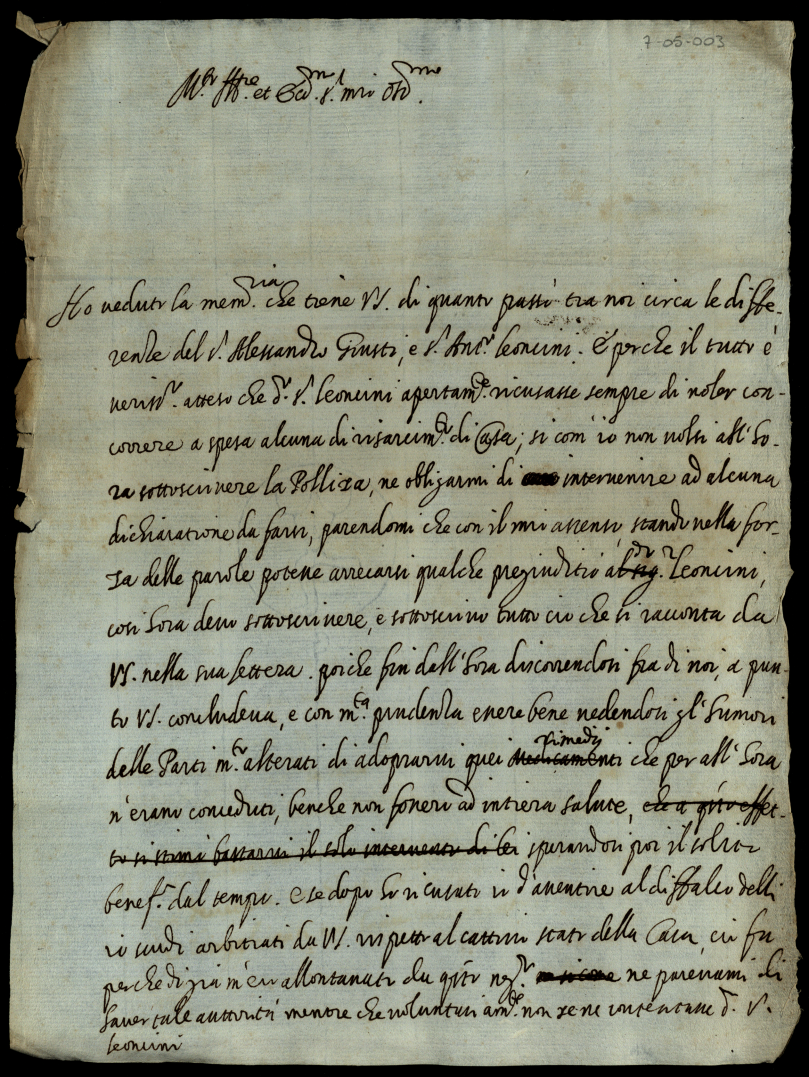 7-05-003
M.r Ill.re et Ecc.mo S.r mio oss.mo
Ho veduto la mem.ria che tiene VS. di quanto passò tra noi circa le diffe-
renze del S.r Alessandro Giusti, e S.r Ant.o Leoncini. E perche il tutto è
veriss.o atteso che d.o S.r Leoncini apertam.te ricusasse sempre di voler con-
correre a spesa alcuna di risarcim.to di Casa; si com' io non volsi all' ho-
ra sottoscrivere la Polliza, ne obligarmi di intervenire ad alcuna
dichiaratione da farsi, parendomi che con il mio assenso, stando nella for-
za delle parole potesse arrecarsi qualche pregiuditio al d.o sig.r Leoncini,
così hora devo sottoscrivere, e sottoscrivo tutto ciò che si racconta da
VS. nella sua lettera. poiche fin dall' hora discorrendosi fra di noi, a pun-
to VS. concludeva, e con m.ta prudenza essere bene vedendosi gl' humori
delle Parti m.to alterati di adoprarvi quei Medicamenti rimedij che per all' hora
n' erano conceduti, benche non fossero ad intiera salute, che a q.sto effet-
to si stimò bastarvi il solo intervento di lei sperandosi poi il solito
benef.o dal tempo. E se dopo ho ricusato io d' assentire al diffalco delli
io scudi arbitrati da VS. rispetto al cattivo stato della Casa, ciò fu
perche di già m' ero allontanato da q.sto neg.o ne parevami di
haver tale auttorità mentre che voluntariam.te non se ne contentasse d.o S.r
Leoncini